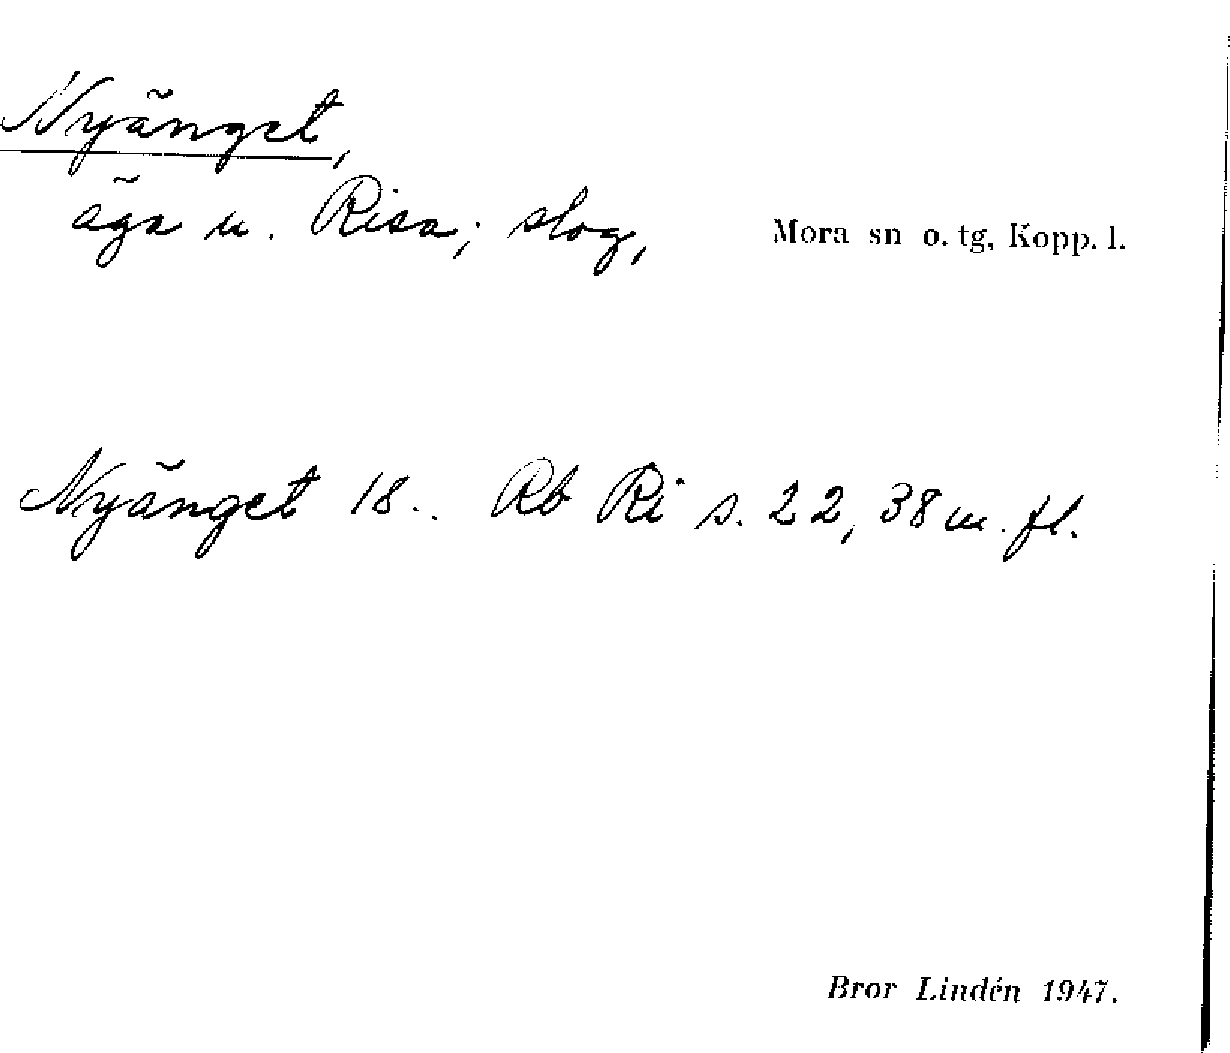 Nyänget,
äga u. Risa; slog,
Mora sn o. tg, Kopp. l.
Nyänget 18.. Rb Ri s. 22, 38 m. fl.
Bror Lindén 1947.